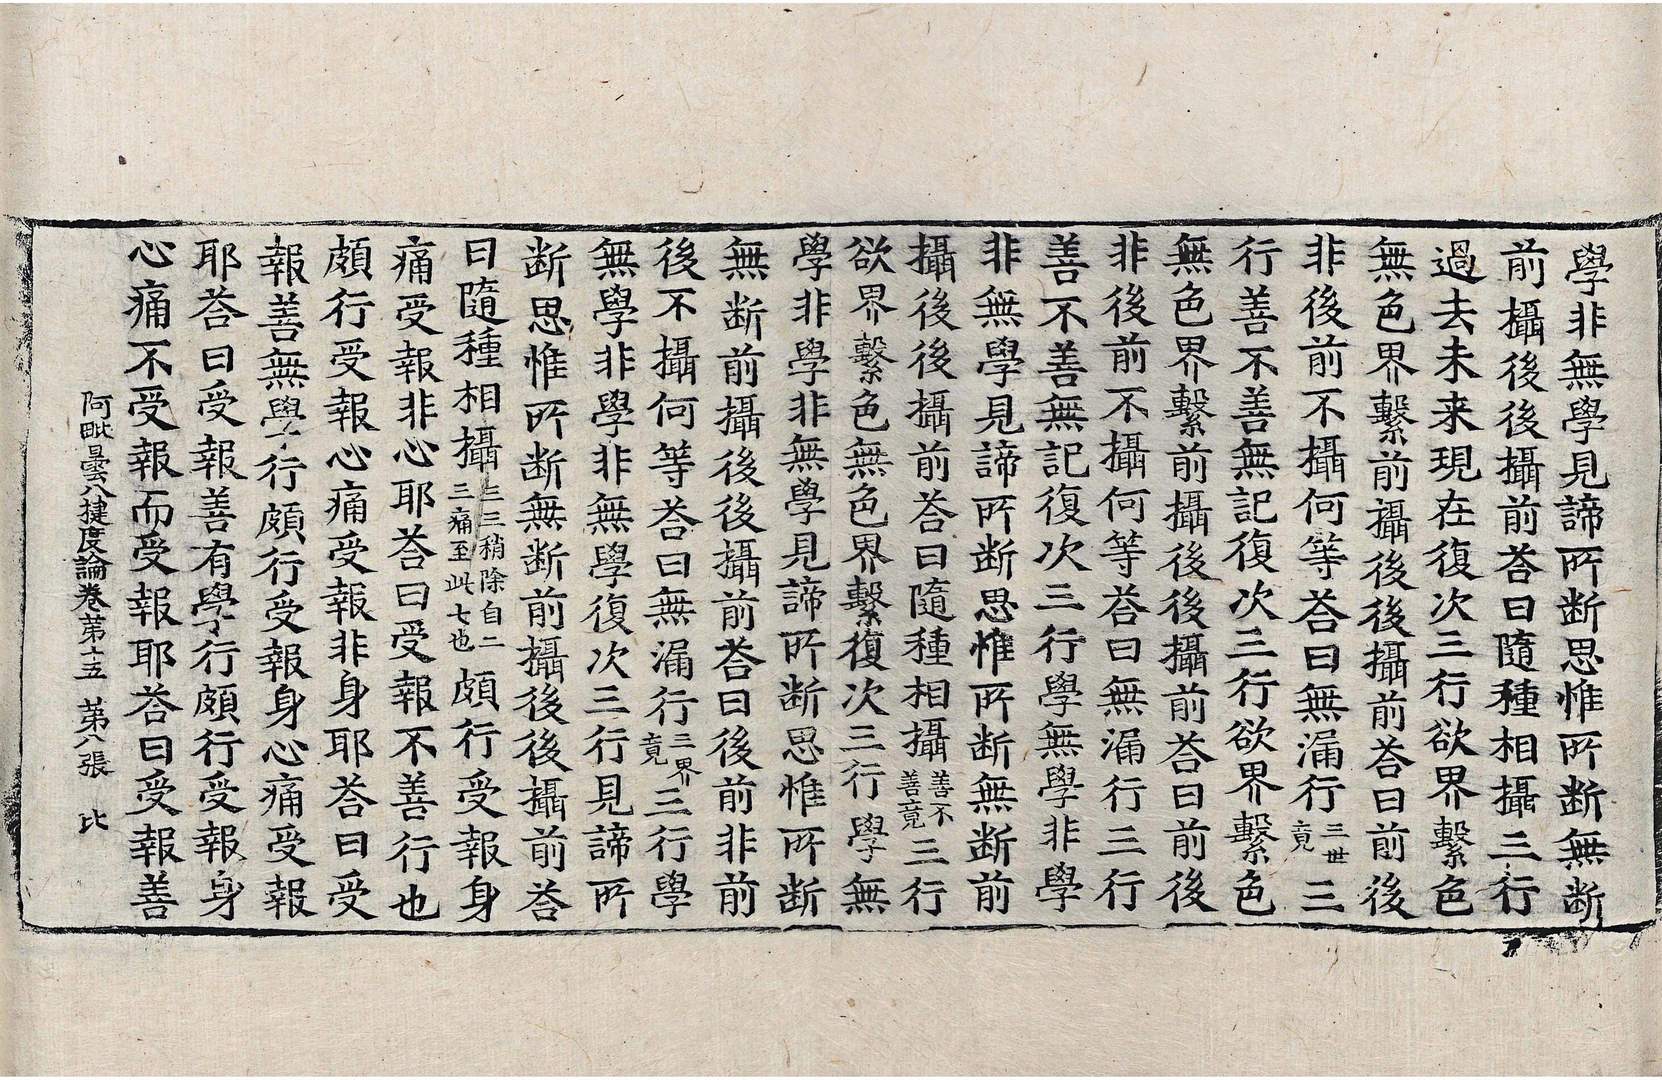 學非無學見諦所断思惟所断無断
前攝後後攝前荅曰隨種相攝三行
過去未来現在復次三行欲界繫色
無色界繫前攝後後攝前荅曰前後
非後前不攝何等荅曰無漏行三世竟三
行善不善無記復次三行欲界繫色
無色界繫前攝後後攝前荅曰前後
非後前不攝何等荅曰無漏行三行
善不善無記復次三行學無學非學
非無學見諦所断思惟所断無断前
攝後後攝前荅曰隨種相攝善不善竟三行
欲界繫色無色界繫復次三行學無
學非學非無學見諦所断思惟所断
無断前攝後後攝前荅曰後前非前
後不攝何等荅曰無漏行三界竟三行學
無學非學非無學復次三行見諦所
断思惟所断無断前攝後後攝前荅
曰隨種相攝三三稍除自二三痛至此七也頗行受報身
痛受報非心耶荅曰受報不善行也
頗行受報心痛受報非身耶荅曰受
報善無學行頗行受報身心痛受報
耶荅曰受報善有學行頗行受報身
心痛不受報而受報耶荅曰受報善
阿毗曇八揵度論卷第十五 第八張 比